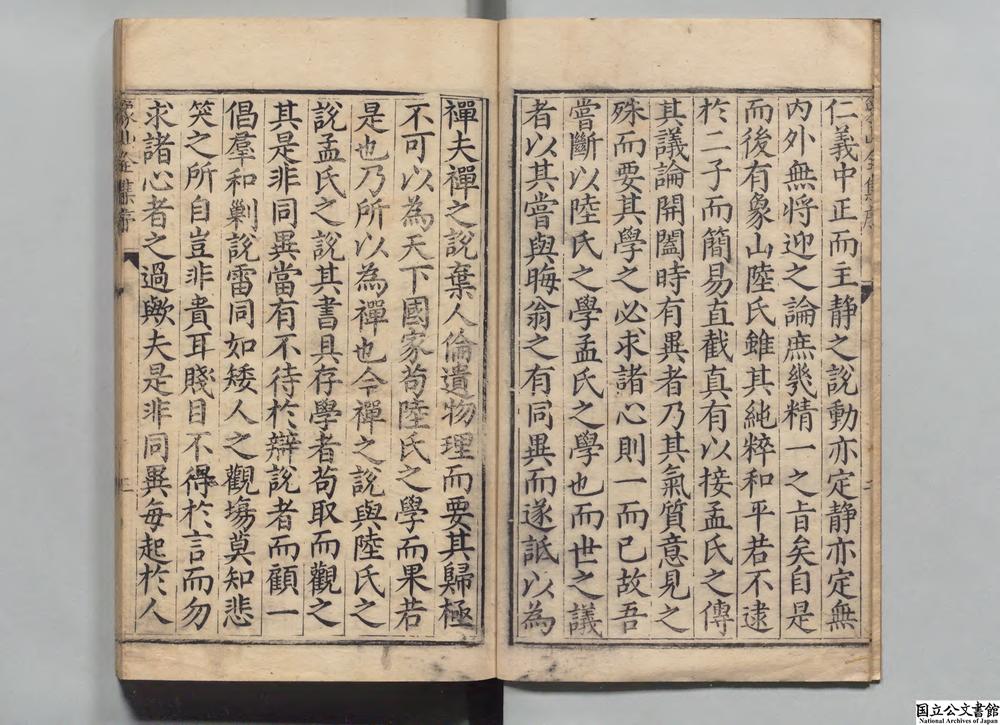 仁義中正而主静之說動亦定静亦定無
内外無將迎之論庶幾精一之旨矣自是
而後有象山陸氏雖其純粹和平若不逮
於二子而簡易直截真有以接孟氏之傳
其議論開闔時有異者乃其氣質意見之
殊而要其學之必求諸心則一而已故吾
嘗斷以陸氏之學孟氏之學也而世之議
者以其嘗與晦翁之有同異而遂詆以為
禪夫禪之說棄人倫遺物理而要其歸極
不可以為天下國家苟陸氏之學而果若
是也乃所以為禪也今禪之說與陸氏之
說孟氏之說其書具存學者苟取而觀之
其是非同異當有不待於辯說者而顧一
倡羣和剿說雷同如矮人之觀塲莫知悲
笑之所自豈非貴耳賤目不得於言而勿
求諸心者之過歟夫是非同異每起於人
象山全集序
国立公文書館
National Archives of Japan